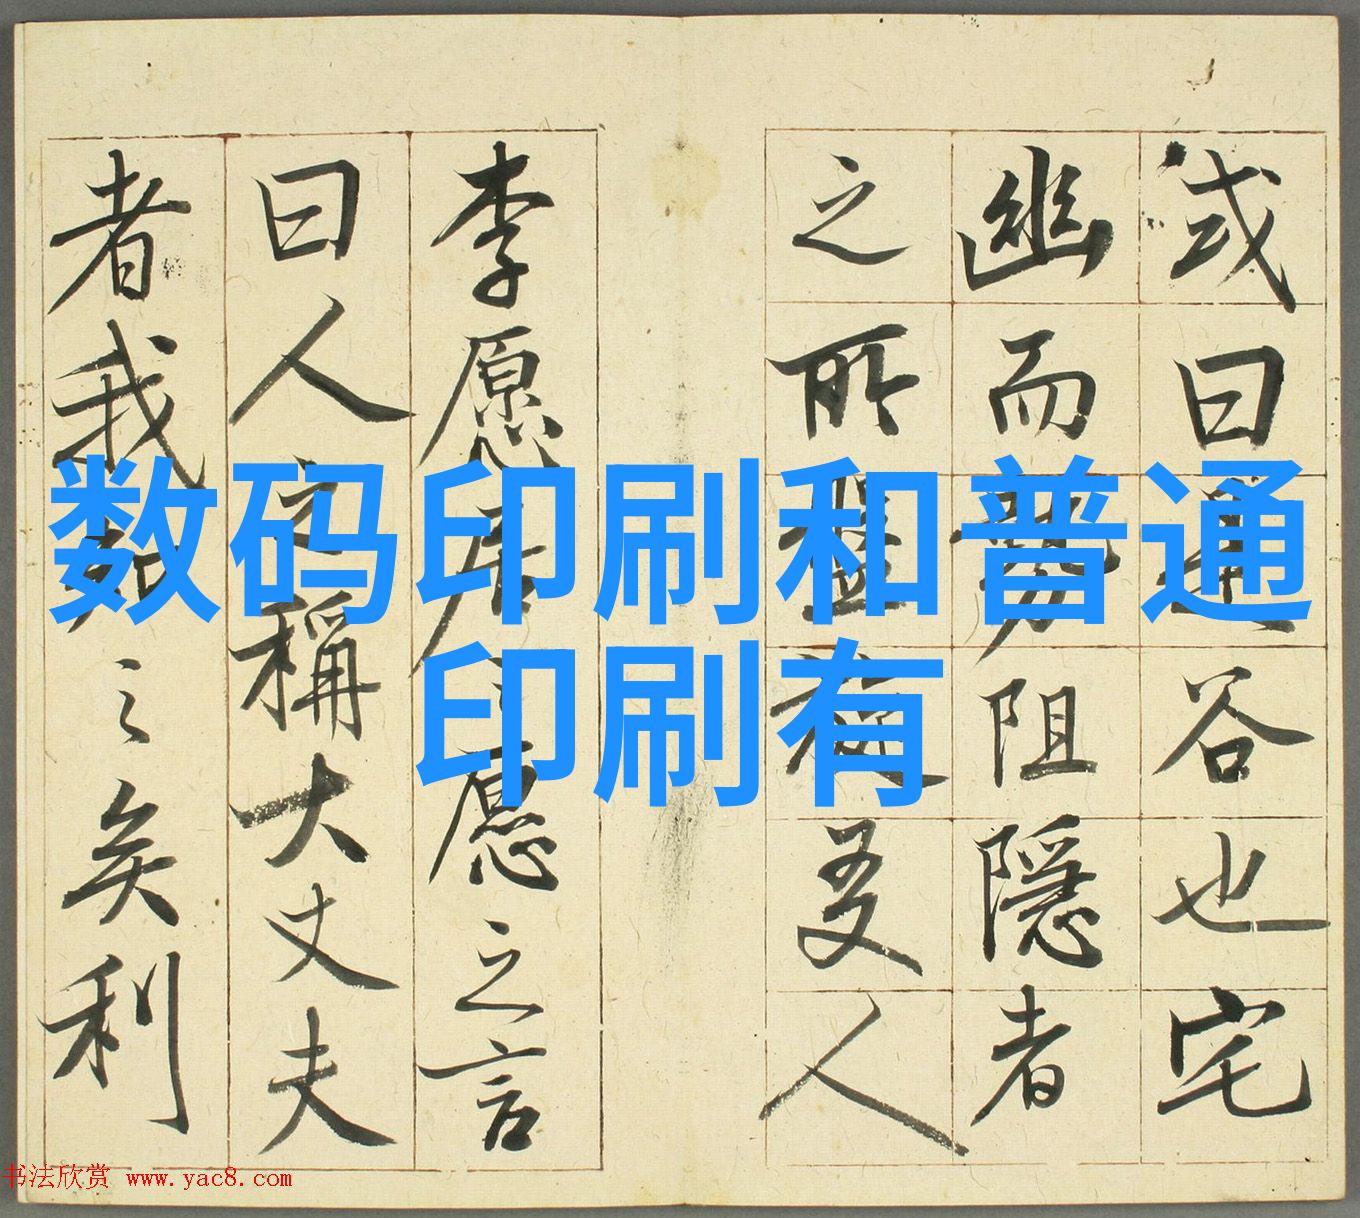 数码印刷和普通
印刷有
或曰是谷也宅
幽而勢阻隱者
之所盤旋友人
李愿居之愿之言
曰人之稱大丈夫
者我知之矣利
书法欣赏 www.yac8.com